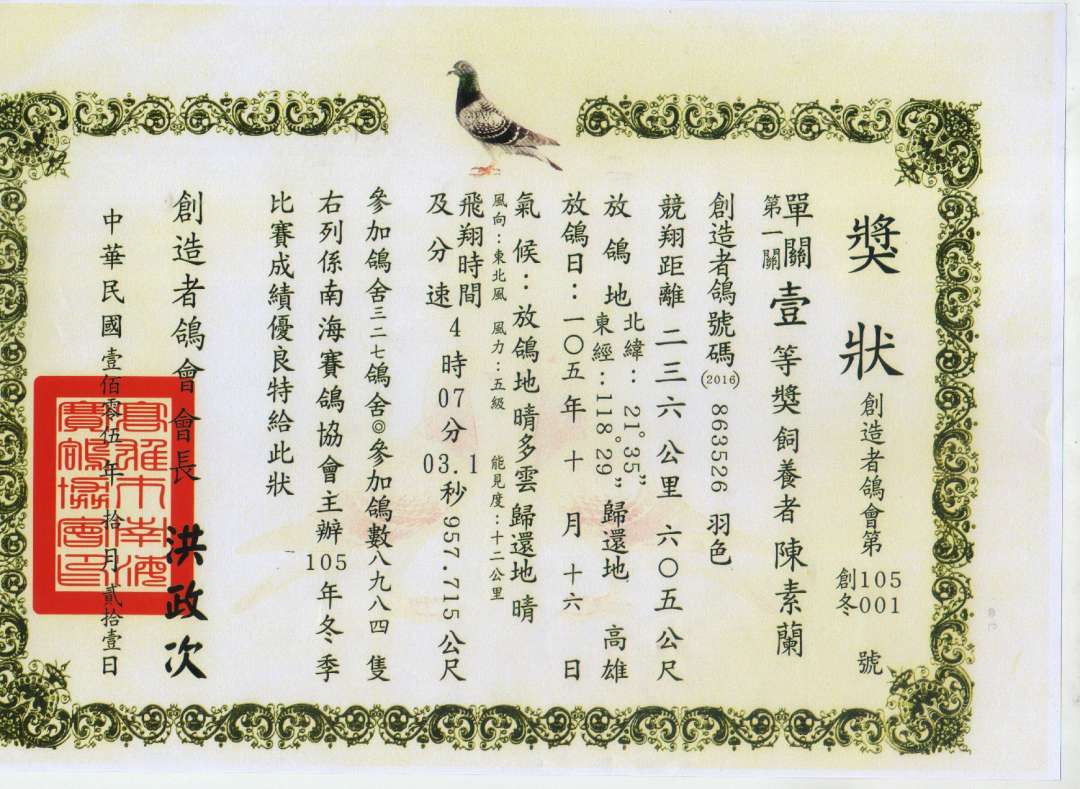 獎狀
創造者鴿會第 105創冬001 號
單關第一關 壹等獎 飼養者 陳素蘭
創造者鴿號碼(2016) 863526 羽色
競翔距離 二三六公里 六〇五公尺
放鴿地 北緯:21°35” 東經:118°29” 歸還地 高雄
放鴿日:一〇五年十月十六日
氣候:放鴿地 晴多雲 歸還地 晴
風向:東北風 風力:五級 能見度:十二公里
飛翔時間及分速 4時07分03.1秒 957.715公尺
參加鴿舍三二七鴿舍◎參加鴿數八九八四隻
右列係南海賽鴿協會主辦105年冬季
比賽成績優良特給此狀
創造者鴿會會長 洪政次
中華民國壹佰零伍年拾月貳拾壹日
高雄市南海賽鴿協會印